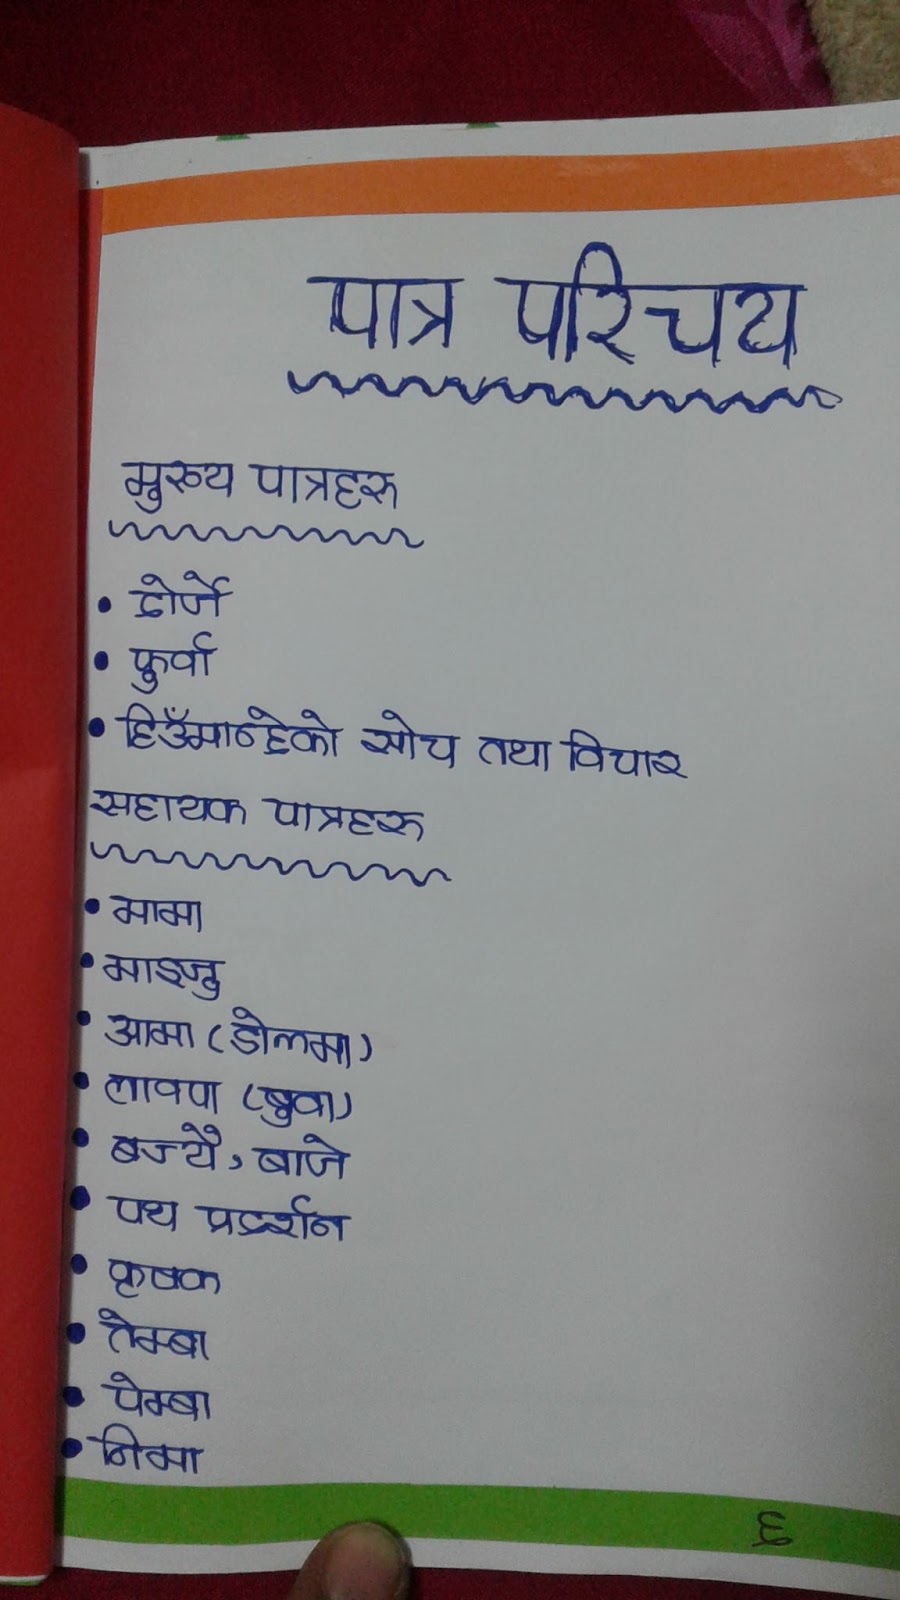 पात्र परिचय
मुख्य पात्रहरु
• दोर्जे
• फुर्वा
• हिउँमान्छेको सोच तथा विचार
सहायक पात्रहरु
• मामा
• माइजु
• आमा (डोलमा)
• लाक्पा (बुवा)
• बज्यै, बाजे
• पथ प्रदर्शन
• कृषक
• तेम्बा
• पेम्बा
• निमा
६